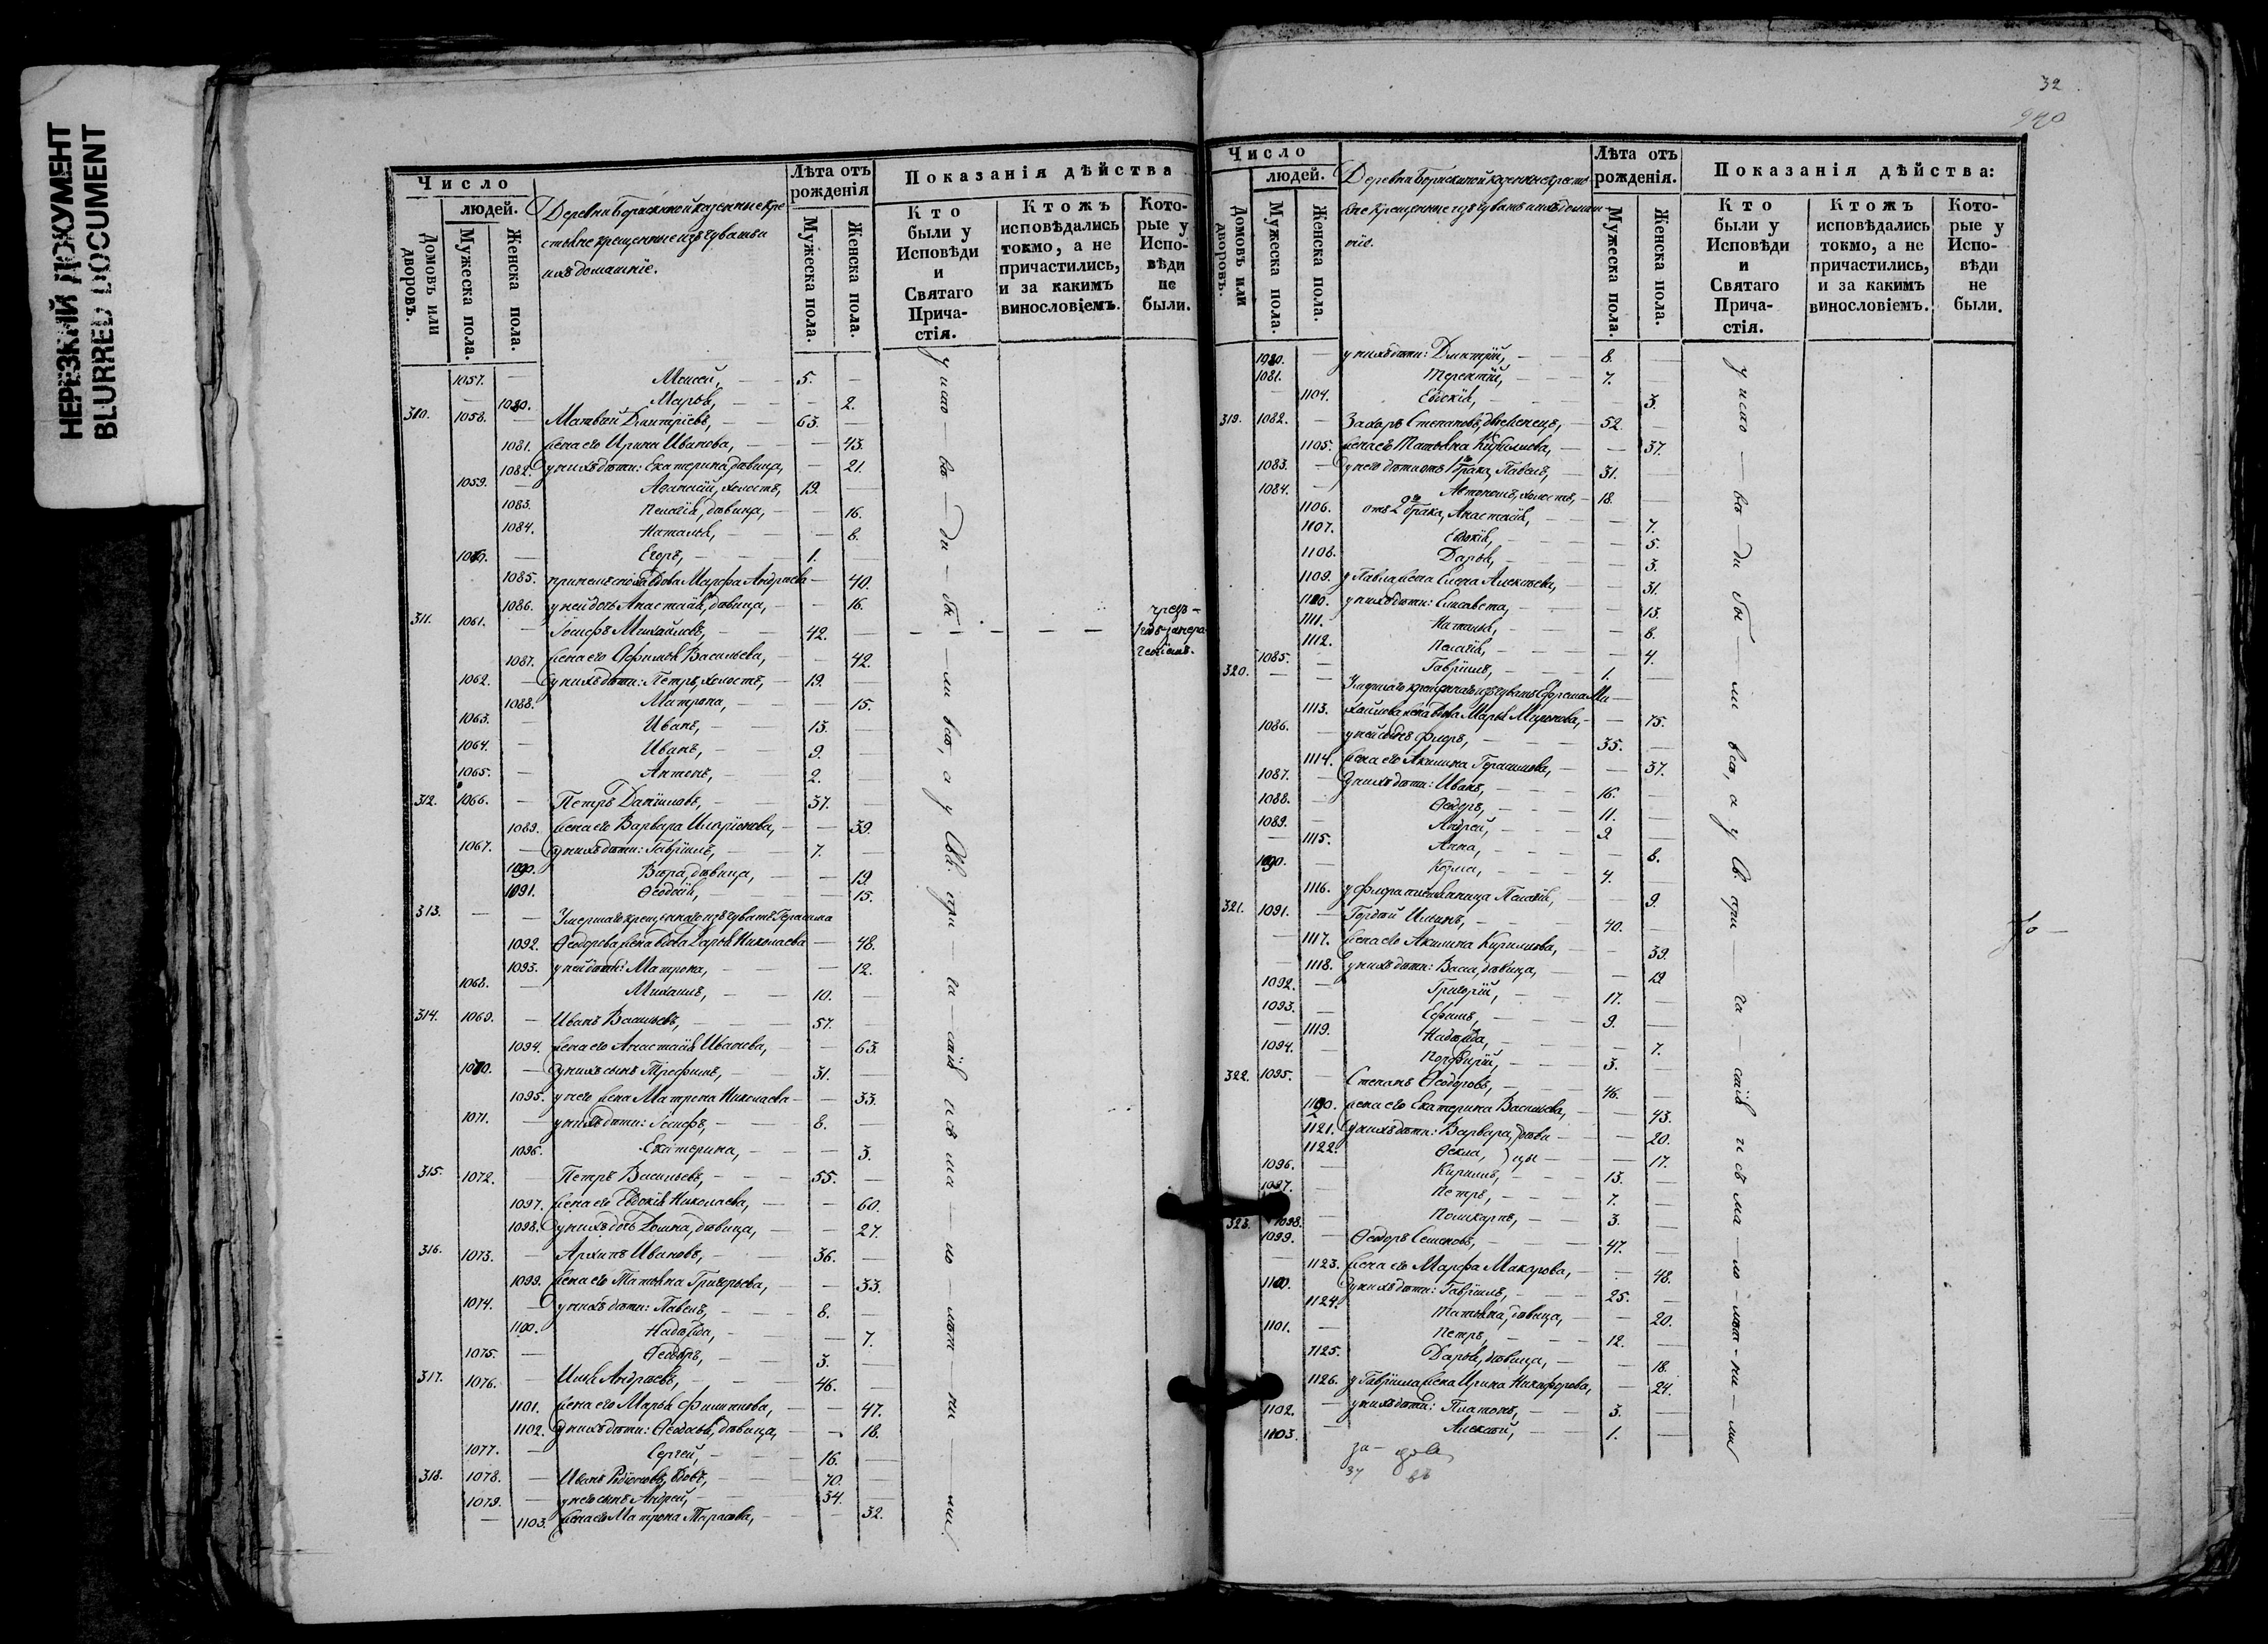 НЕРЕЗКИЙ ДОКУМЕНТ
BLURRED DOCUMENT
Число
людей.
Домовъ или дворовъ.
Мужеска пола.
Женска пола.
Деревни Борискиной казенные кре-
стьяне крещенные изъ чувашъ и
ихъ домашніе.
Лѣта отъ рожденія
Мужеска пола.
Женска пола.
Показанія дѣйства
Кто были у Исповѣди и Святаго Прича-стія.
Ктожъ исповѣдались токмо, а не причастились, и за какимъ винословіемъ.
Кото-рые у Испо-вѣди не были.
1057. — Моисей, — 5. —
— 1080. Марья, — — 2.
310. 1058. — Матвей Димитріевъ, — 63. —
1081. жена его Ирина Иванова, — — 43.
1082. у нихъ дѣти: Екатерина, дѣвица, — 21.
1059. — Аѳанасій, холостъ, 19. —
1083. Пелагія, дѣвица, — — 16.
1084. Наталья, — — 8.
1060. — Егоръ, — 1. —
1085. вдова Марфа Андреева — 40.
1086. у ней дочь Анастасія, дѣвица, — — 16.
311. 1061. — Іосифъ Михайловъ, — 42. —
1087. жена его Ефимья Васильева, — — 42.
1062. — у нихъ дѣти: Петръ, холостъ, — 19. —
1088. Матрона, — — 15.
1063. — Иванъ, — 13. —
1064. — Иванъ, — 9. —
1065. — Антонъ, — 2. —
312. 1066. — Петръ Даниловъ, — 37. —
1089. жена его Варвара Иларіонова, — — 39.
1067. — у нихъ дѣти: Гавріилъ, — 7. —
1090. Вѣра, дѣвица, — — 19.
1091. Ѳеодосія, — — 15.
313. — — Умершаго крещенаго изъ чувашъ Герасима
1092. Ѳеодорова жена вдова Дарья Николаева — 48.
1093. у ней дѣти: Матрона, — — 12.
1068. — Михаилъ, — 10. —
314. 1069. — Иванъ Васильевъ, — 57. —
1094. жена его Анастасія Иванова, — — 63.
1070. — у нихъ сынъ Трофимъ, — 31. —
1095. у него жена Матрона Николаева — — 33.
1071. — у нихъ дѣти: Іосифъ, — 8. —
1096. Екатерина, — — 3.
315. 1072. — Петръ Васильевъ, — 55. —
1097. жена его Евдокія Николаева, — — 60.
1098. у нихъ дочь Домна, дѣвица, — — 27.
316. 1073. — Архипъ Ивановъ, — 36. —
1099. жена его Татьяна Григорьева, — — 33.
1074. — у нихъ дѣти: Павелъ, — 8. —
1100. Надежда, — — 7.
1075. — Ѳеодоръ, — 3. —
317. 1076. — Илья Андреевъ, — 46. —
1101. жена его Марья Филиппова, — — 47.
1102. у нихъ дѣти: Ѳеодосья, дѣвица, — — 18.
1077. — Сергей, — 16. —
318. 1078. — Иванъ Родіоновъ, вдовъ, — 70.
1079. — у него сынъ Андрей, — 34. —
— 1103. жена его Матрона Тарасова, — — 32.
у испо — вѣ — ди — бы — ли всѣ, а у Св. при — ча — стія
32
Число
людей.
Домовъ или дворовъ.
Мужеска пола.
Женска пола.
Деревни Борискиной казенные кресть-
яне крещенные изъ чувашъ и ихъ домаш-
ніе.
Лѣта отъ рожденія.
Мужеска пола.
Женска пола.
Показанія дѣйства:
Кто были у Исповѣди и Святаго Прича-стія.
Ктожъ исповѣдались токмо, а не причастились, и за какимъ винословіемъ.
Кото-рые у Испо-вѣди не были.
1080. — у нихъ дѣти: Димитрій, — 8. —
1081. Терентій, — 7. —
1104. Евдокія, — — 3.
319. 1082. — Захаръ Степановъ, двоженецъ, — 52. —
1105. жена его Татьяна Кирилова, — — 37.
1083. — у него дѣти отъ 1го брака, Павелъ, — 31. —
1084. — Автономъ, холостъ, — 18. —
1106. отъ 2го брака, Анастасія, — — 7.
1107. Евдокія, — — 5.
1108. Дарья, — — 3.
1109. у Павла жена Елена Алексѣева, — — 31.
1110. у нихъ дѣти: Елисавета, — — 13.
1111. Наталья, — — 8.
1112. Пелагія, — — 4.
1085. — Гавріилъ, — 1. —
320. — — Умершаго крещенаго изъ чувашъ Ефрема Ми-
1113. хайлова жена вдова Марья Миронова, — — 75.
1086. — у ней сынъ Флоръ, — 35. —
1114. жена его Акилина Герасимова, — — 37.
1087. — у нихъ дѣти: Иванъ, — 16. —
1088. — Ѳеодоръ, — 11. —
1089. — Андрей, — 9 —
— 1115. Анна, — — 8.
1090. — Козма, — 4. —
1116. у Флора племянница Пелагія, — — 9.
321. 1091. — Гордей Ильинъ, — 40. —
— 1117. жена его Акилина Кирилова, — — 39.
— 1118. у нихъ дѣти: Васса, дѣвица, — — 19
1092. — Григорій, — 17. —
1093. — Ефимъ, — 9. —
— 1119. Надежда, — — 7.
1094. — Порфирій, — 3. —
322. 1095. — Степанъ Ѳеодоровъ, — 46. —
1120. жена его Екатерина Васильева, — — 43.
1121. у нихъ дѣти: Варвара, дѣви- — — 20.
1122. Ѳекла, } цы — — 17.
1096. — Кириллъ, — 13. —
1097. — Петръ, — 7. —
1098. — Поликарпъ, — 3. —
323. 1099. — Ѳеодоръ Семеновъ, — 47. —
— 1123. жена его Марфа Макарова, — — 48.
1100. у нихъ дѣти: Гавріилъ, — 25. —
1124. Татьяна, дѣвица, — — 20.
1101. — Петръ, — 12. —
1125. Дарья, дѣвица, — — 18.
1126. у Гавріила жена Ирина Никифорова, — 24.
1102. — у нихъ дѣти: Платонъ, — 3. —
1103. — Алексѣй, — 1. —
у испо — вѣ — ди бы — ли всѣ, а у Св. при — ча — стія